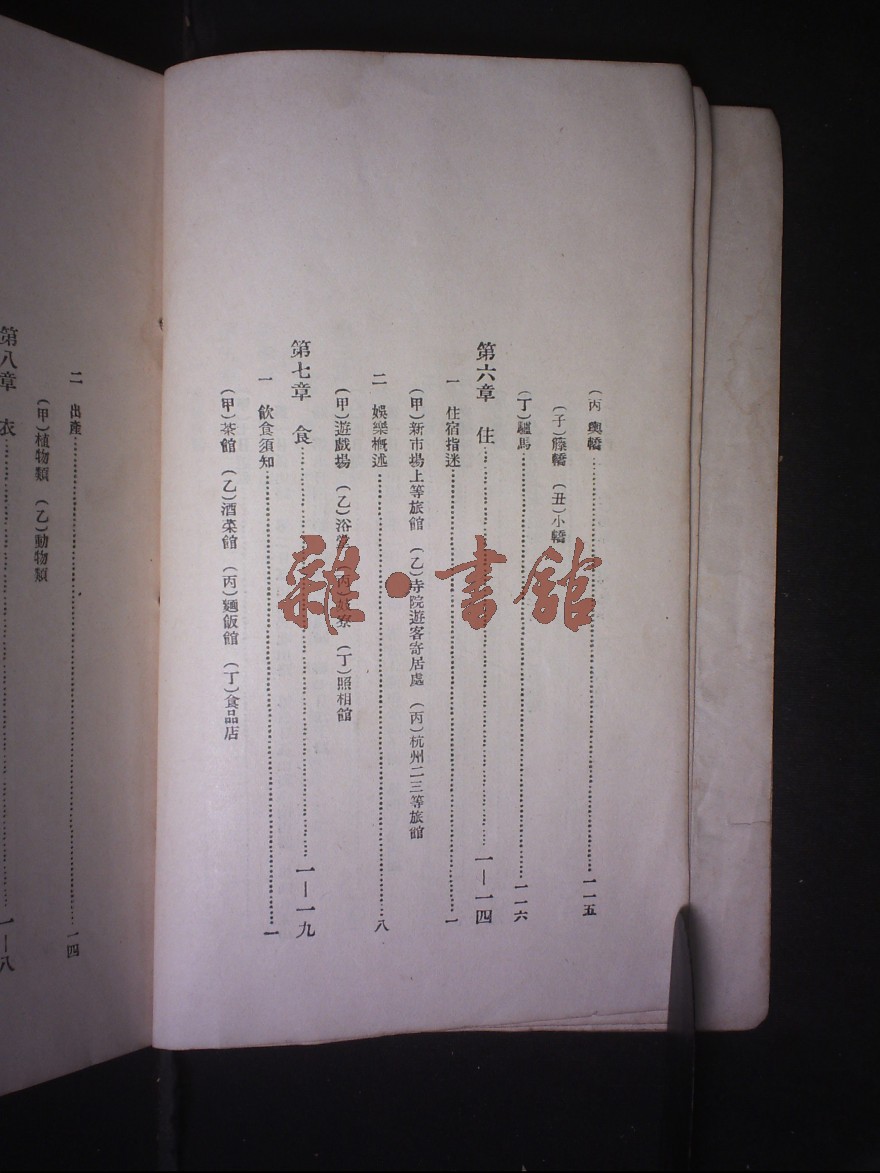 （丙）輿轎……一一五
（子）籐轎　（丑）小轎
（丁）驢馬……一一六
第六章　住……一—一四
一　住宿指迷……一
（甲）新市場上等旅館　（乙）寺院遊客寄居處　（丙）杭州二三等旅館
二　娛樂概述……八
（甲）遊戲場　（乙）浴　（丙）　（丁）照相館
第七章　食……一—一九
一　飲食須知……一
（甲）茶館　（乙）酒菜館　（丙）麵飯館　（丁）食品店
二　出產……一四
（甲）植物類　（乙）動物類
第八章　衣……一—八
雜·書館